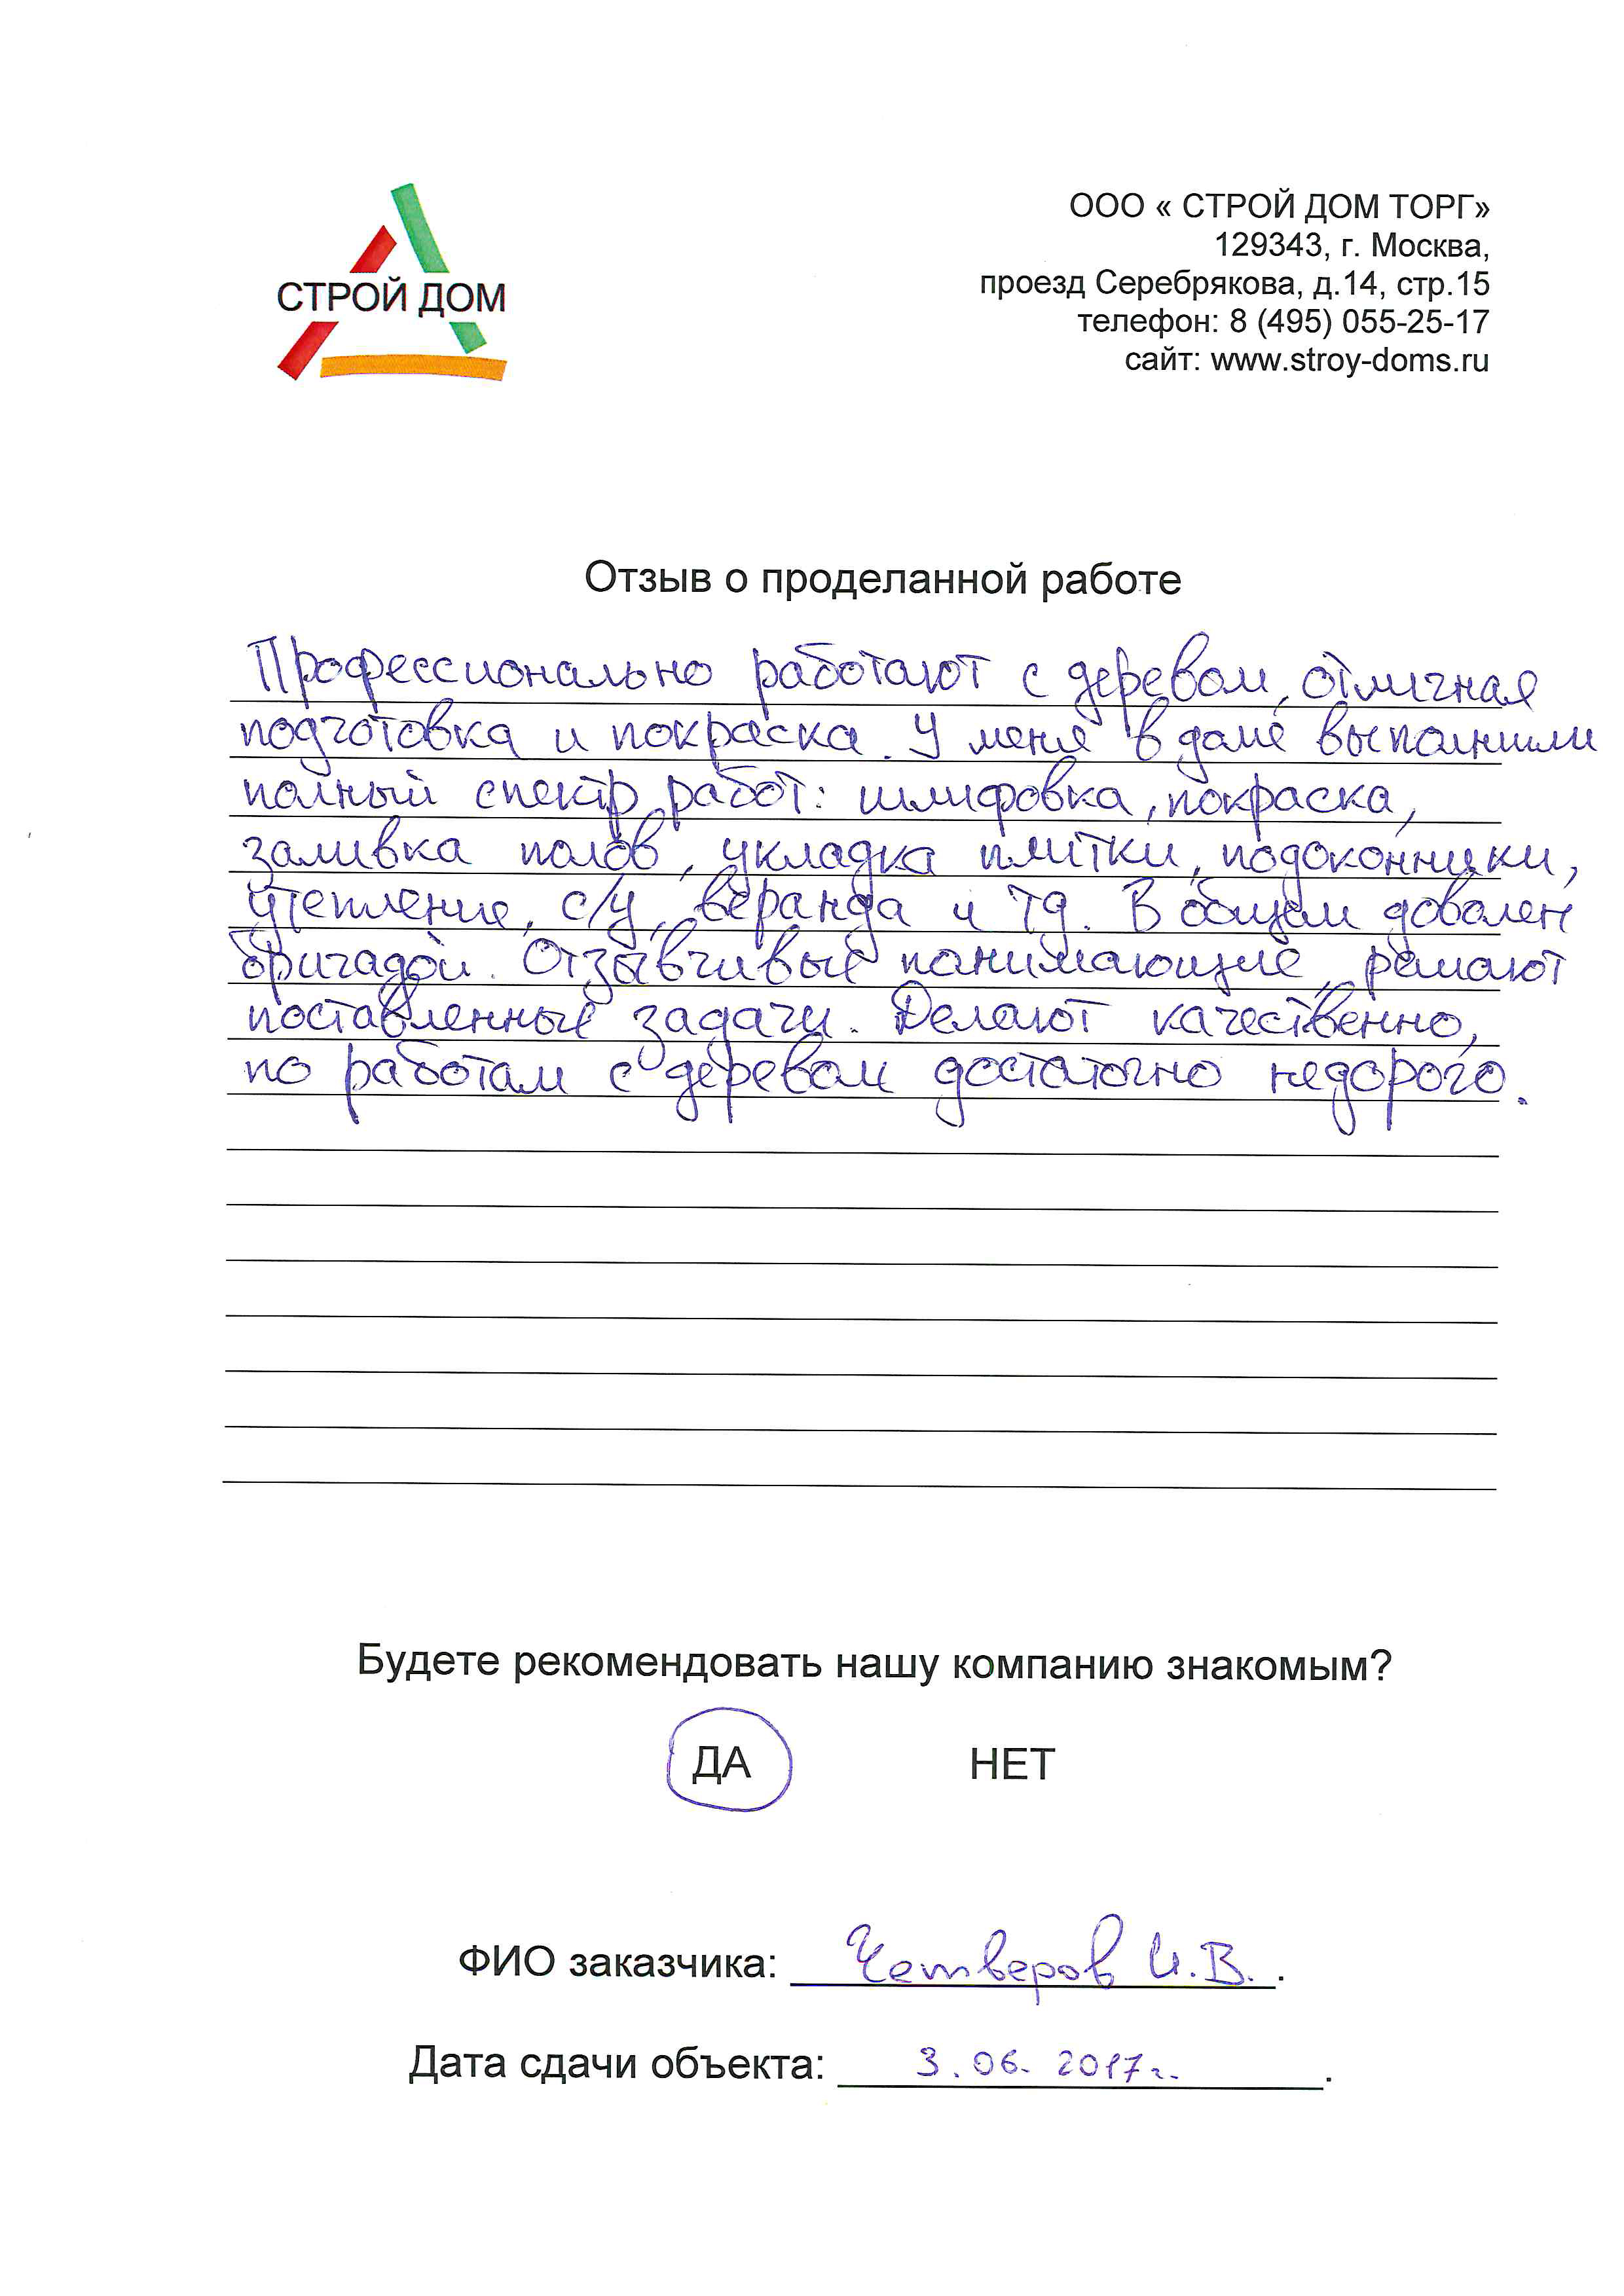 СТРОЙ ДОМ
ООО « СТРОЙ ДОМ ТОРГ»
129343, г. Москва,
проезд Серебрякова, д.14, стр.15
телефон: 8 (495) 055-25-17
сайт: www.stroy-doms.ru
Отзыв о проделанной работе
Профессионально работают с деревом, отличная
подготовка и покраска. У меня в доме выполнили
полный спектр работ: шлифовка, покраска,
заливка полов, укладка плитки, подоконники,
утепление, с/у, веранда и тд. В общем доволен
бригадой. Отзывчивые понимающие, решают
поставленные задачи. Делают качественно,
по работам с деревом достаточно недорого.
Будете рекомендовать нашу компанию знакомым?
ДА НЕТ
ФИО заказчика: Четверов И.В.
Дата сдачи объекта: 3.06.2017г.